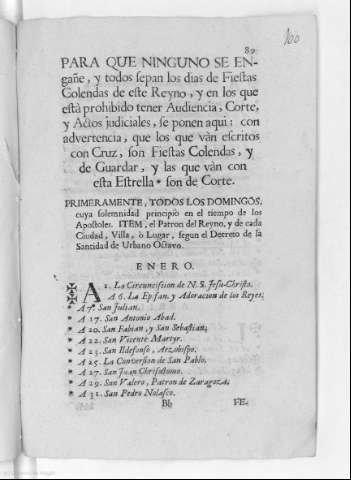 89
100
PARA QUE NINGUNO SE EN-
gañe, y todos sepan los dias de Fiestas
Colendas de este Reyno, y en los que
està prohibido tener Audiencia, Corte,
y Actos judiciales, se ponen aqui: con
advertencia, que los que vàn escritos
con Cruz, son Fiestas Colendas, y
de Guardar, y las que vàn con
esta Estrella * son de Corte.
PRIMERAMENTE, TODOS LOS DOMINGOS,
cuya solemnidad principiò en el tiempo de los
Apostoles. ITEM, el Patron del Reyno, y de cada
Ciudad, Villa, ò Lugar, segun el Decreto de la
Santidad de Urbano Octavo.
ENERO.
✠ A 1. La Circuncission de N. S. Jesu-Christo.
✠ A 6. La Epifan. y Adoracion de los Reyes.
* A 7. San Julian.
* A 17. San Antonio Abad.
* A 20. San Fabian, y San Sebastian.
* A 22. San Vicente Martyr.
* A 23. San Ildefonso, Arzobispo.
* A 25. La Conversion de San Pablo.
* A 27. San Juan Chrisostomo.
* A 29. San Valero, Patron de Zaragoza.
* A 31. San Pedro Nolasco.
Bb FE-